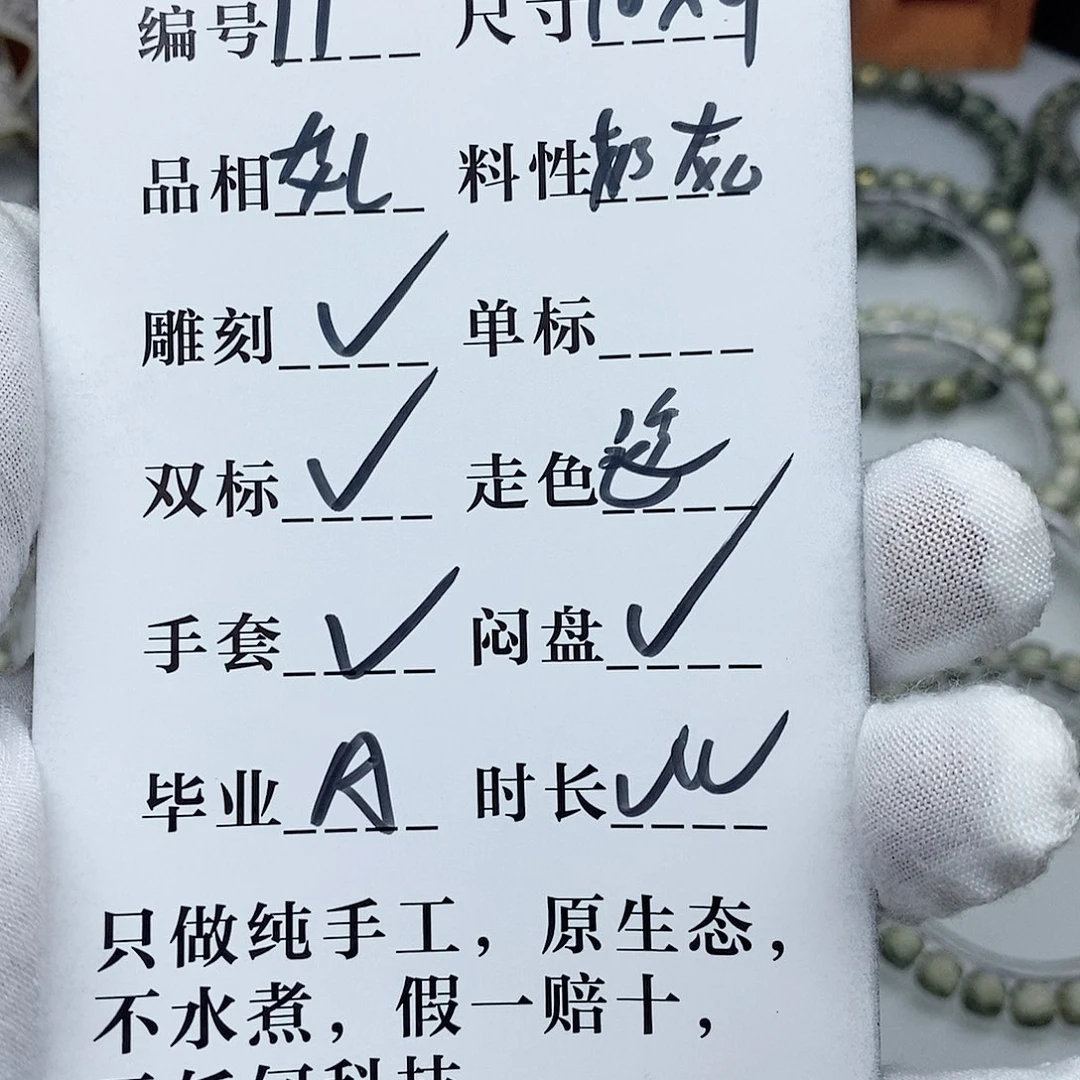 编号 11 尺寸 10x9
品相 料性 奶灰
雕刻 ✓ 单标
双标 ✓ 走色
手套 ✓ 闷盘 ✓
毕业 A 时长
只做纯手工，原生态，
不水煮，假一赔十，